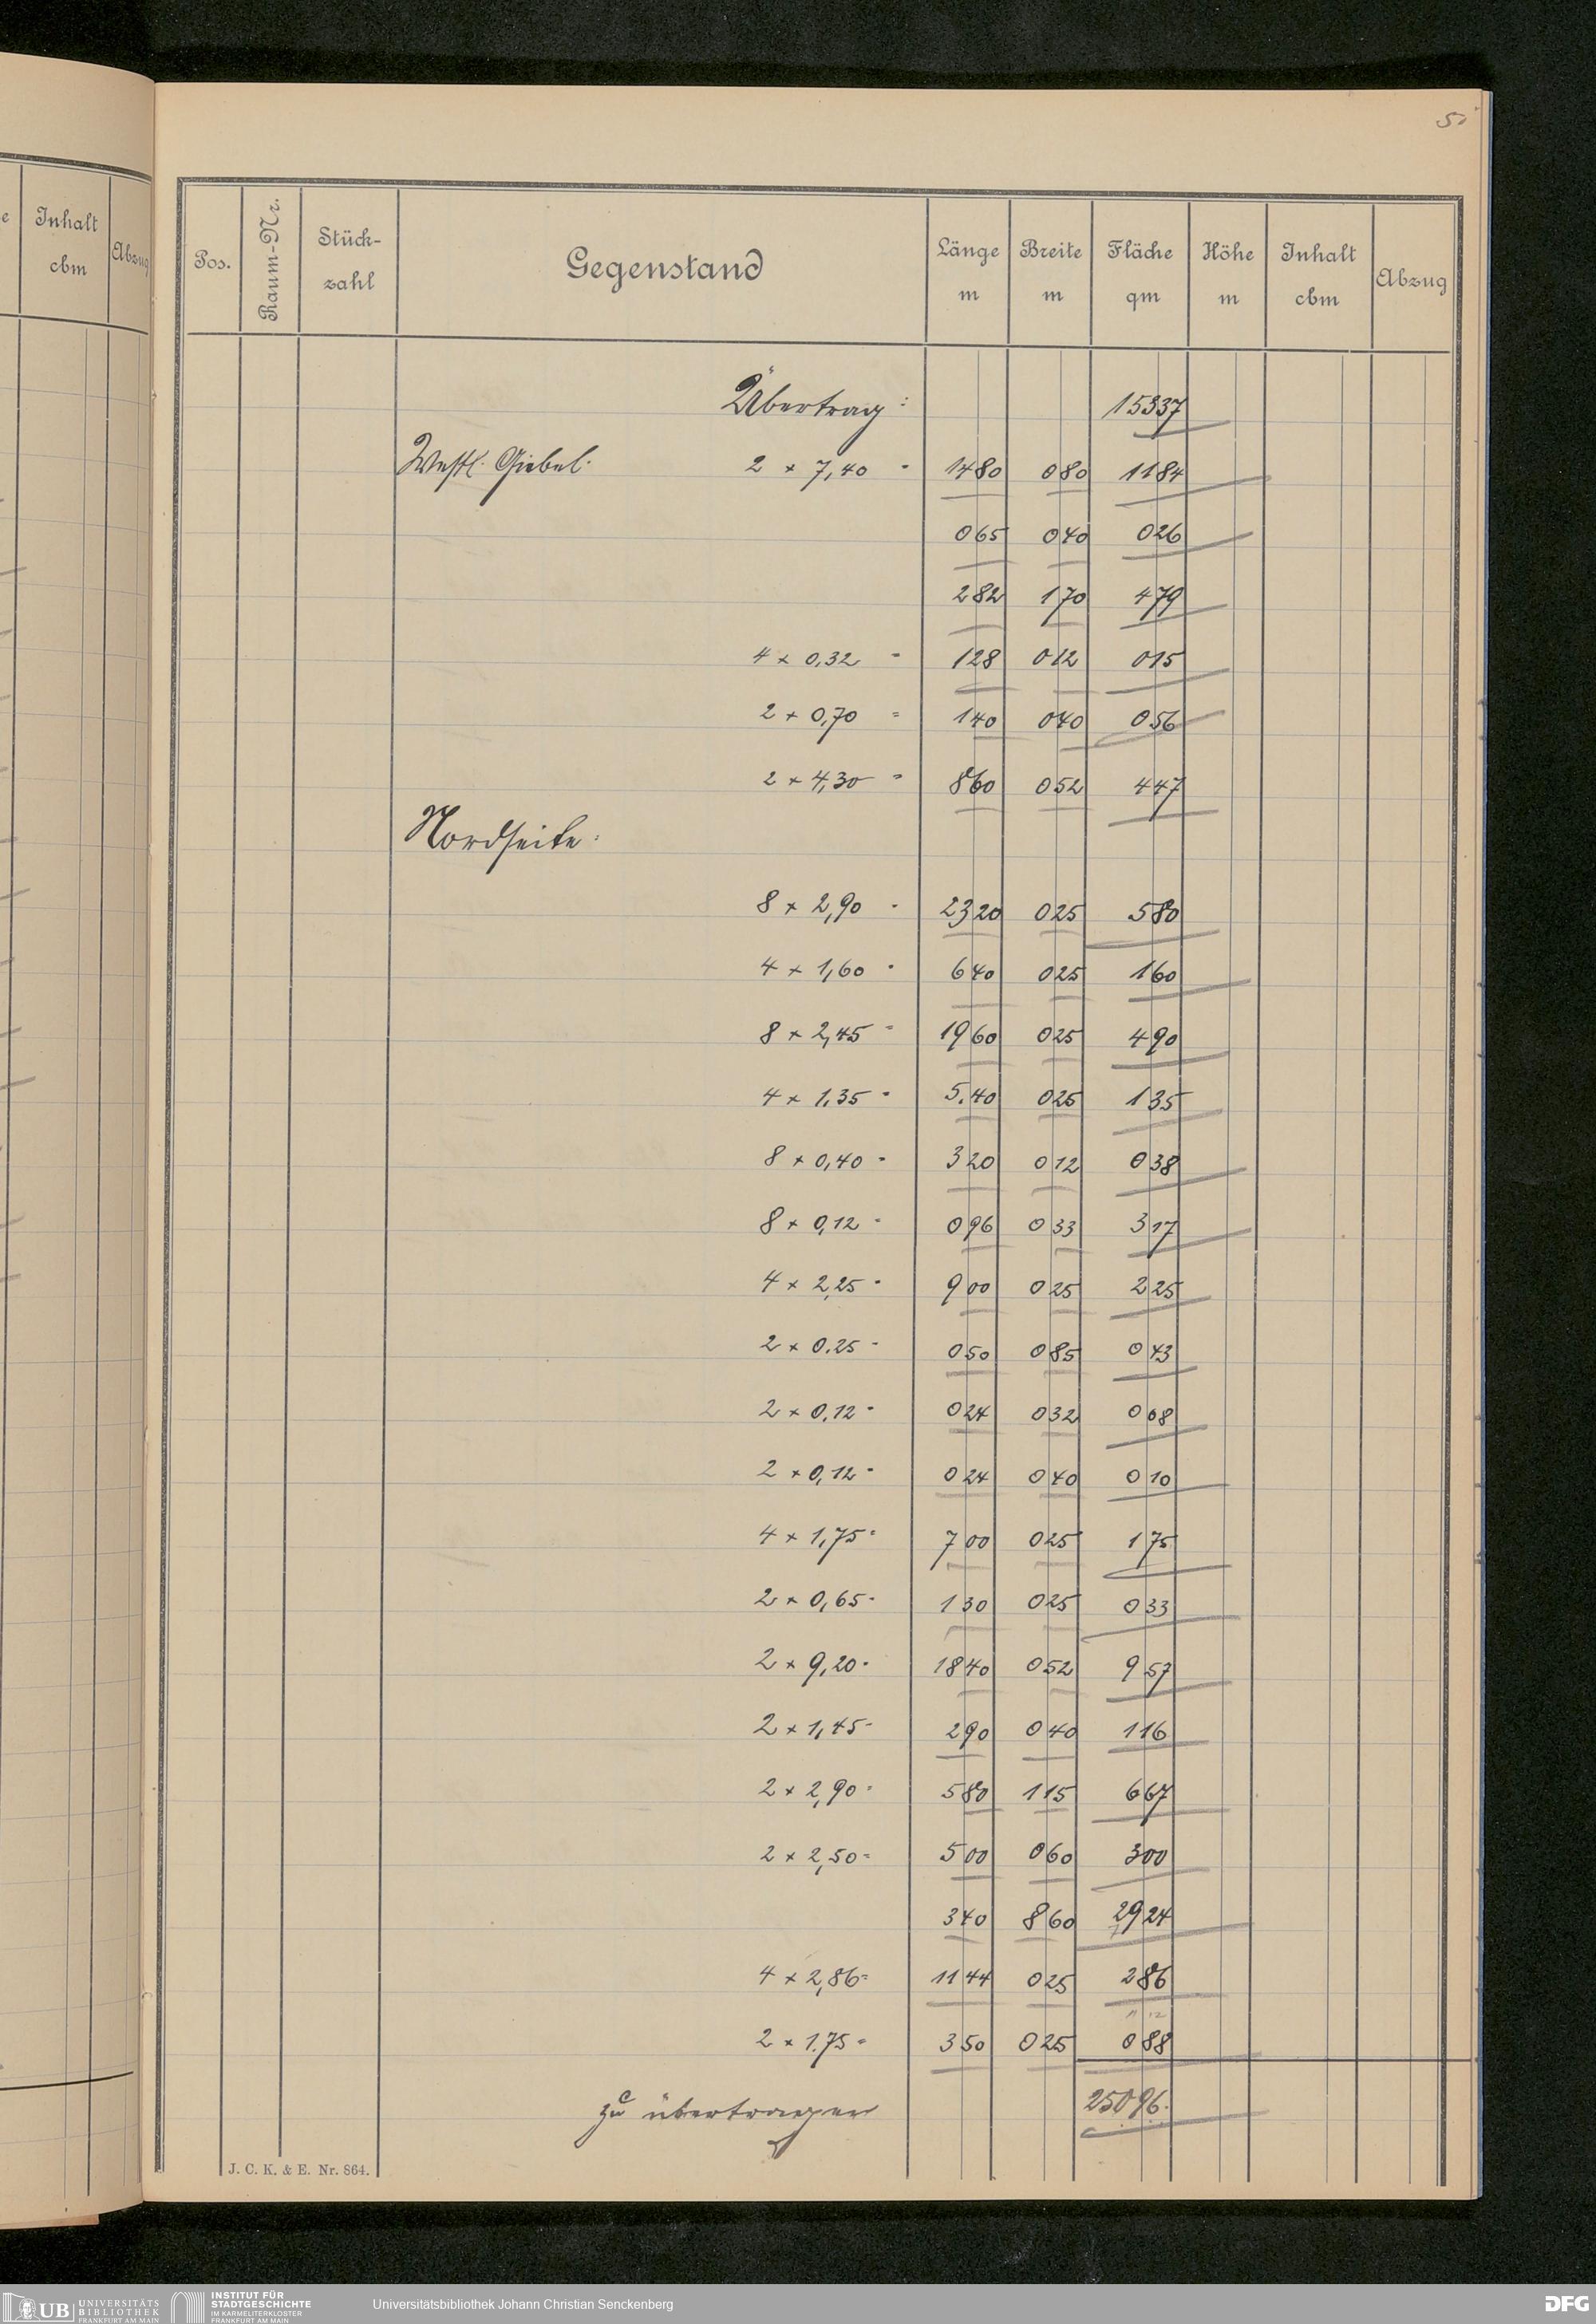 5
Inhalt cbm
Abzug
Pos. Raum-Nr. Stück-zahl Gegenstand Länge m Breite m Fläche qm Höhe m Inhalt cbm Abzug
Übertrag: 15337
Westl. Giebel. 2 × 7,40 = 1480 080 1184
065 040 026
282 170 479
4 × 0,32 = 128 012 015
2 × 0,70 = 140 040 056
2 × 4,30 = 860 052 447
Nordseite:
8 × 2,90 = 2320 025 580
4 × 1,60 = 640 025 160
8 × 2,45 = 1960 025 490
4 × 1,35 = 5.40 025 135
8 × 0,40 = 320 012 038
8 × 0,12 = 096 033 317
4 × 2,25 = 900 025 225
2 × 0.25 = 050 085 043
2 × 0,12 = 024 032 008
2 × 0,12 = 024 040 010
4 × 1,75 = 700 025 175
2 × 0,65 = 130 025 033
2 × 9,20 = 1840 052 957
2 × 1,45 = 290 040 116
2 × 2,90 = 580 115 667
2 × 2,50 = 500 060 300
340 860 2924
4 × 2,86 = 1144 025 286
2 × 1.75 = 350 025 088
zu übertragen 25096.
J. C. K. & E. Nr. 864.
UB UNIVERSITÄTS BIBLIOTHEK FRANKFURT AM MAIN
INSTITUT FÜR STADTGESCHICHTE IM KARMELITERKLOSTER FRANKFURT AM MAIN
Universitätsbibliothek Johann Christian Senckenberg
DFG